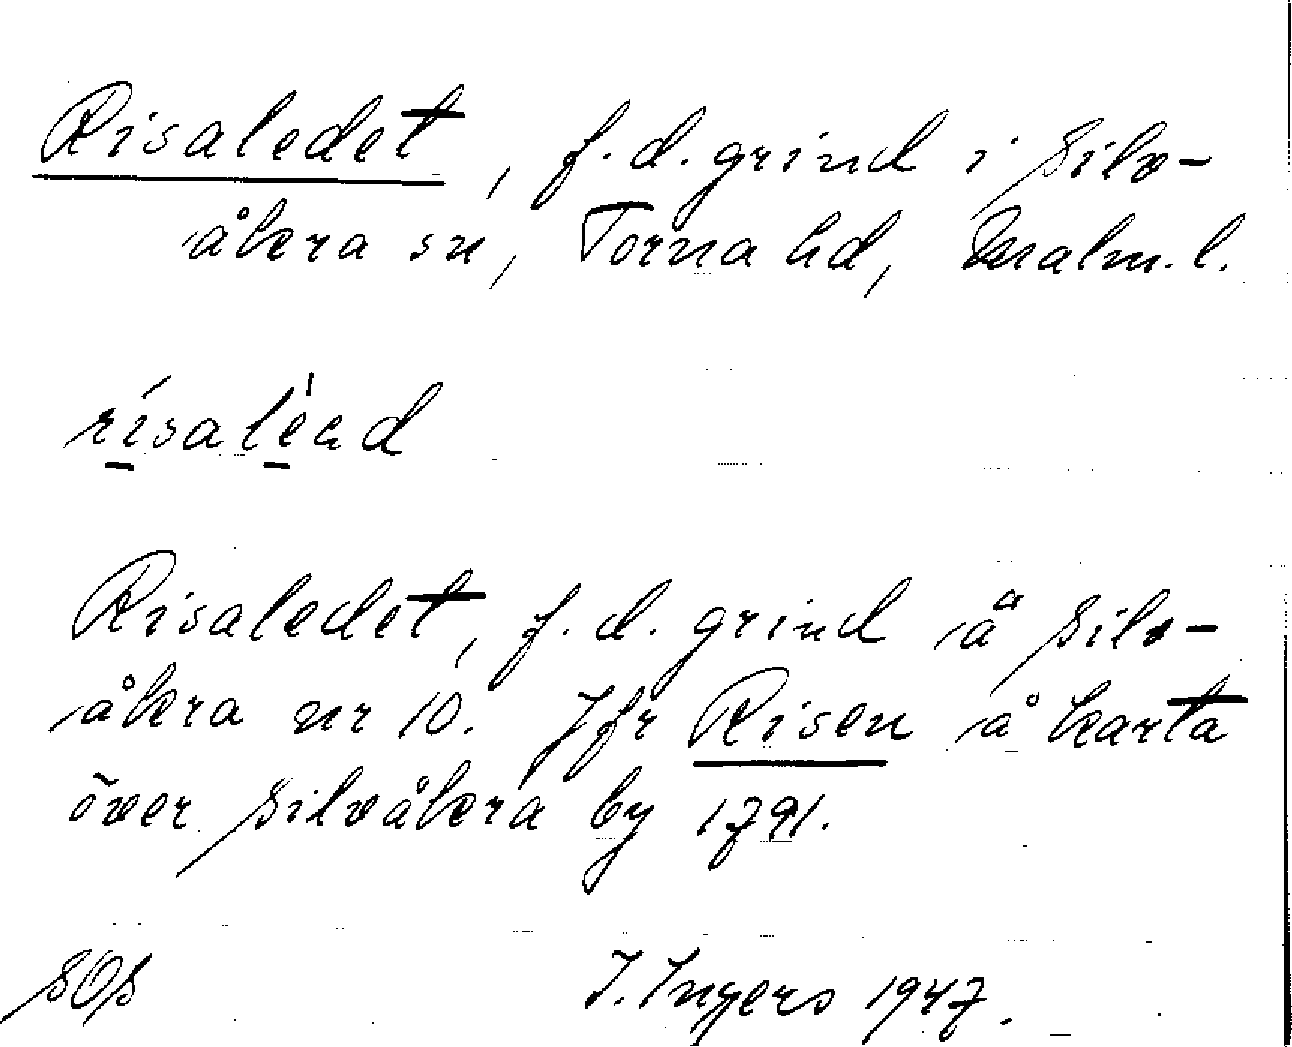 Risaledet, f.d. grind i Silv-
åkra sn, Torna hd, Malm. l.
rísalèad
Risaledet, f.d. grind å Silv-
åkra nr 10. Jfr Risen å karta
över Silvåkra by 1791.
SOS I. Ingers 1947.